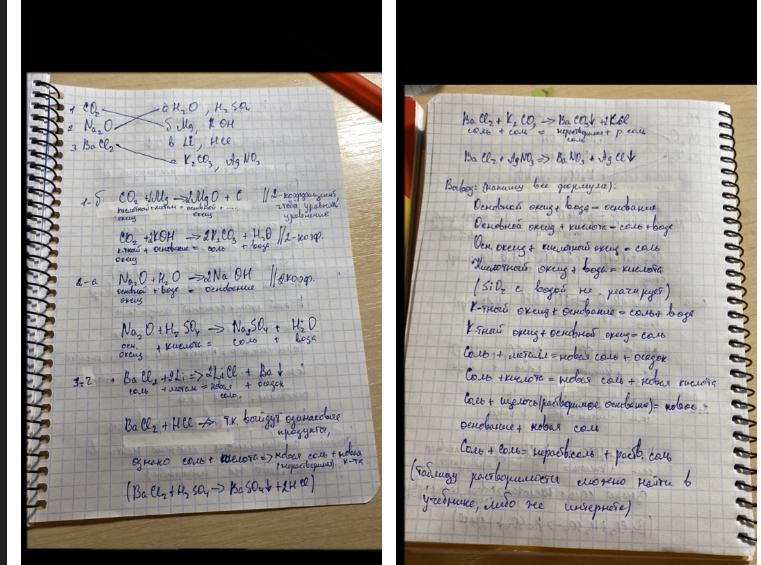 1 CO₂ а H₂O, H₂SO₄
2 Na₂O б Mg, KOH
3 BaCl₂ в Li, HCl
г K₂CO₃, AgNO₃
1-б CO₂+2Mg→2MgO + C // 2-коэффициент,
чтобы уравнять
оксид оксид уравнение
CO₂+2KOH → K₂CO₃ + H₂O // 2-коэф.
к-тный + основание = соль + вода
оксид
2-а Na₂O+H₂O →2NaOH // 2коэф.
основной + вода = основание
оксид
Na₂O+H₂SO₄ → Na₂SO₄ + H₂O
осн. + кислота = соль + вода
оксид
3-г BaCl₂+2Li=>2LiCl + Ba↓
соль + металл = новая + осадок
соль
BaCl₂+HCl ↛ т.к. выйдут одинаковые
продукты,
однако соль + кислота => новая соль + новая
(нерастворимая) к-та
(BaCl₂+H₂SO₄→BaSO₄↓+2HCl)
BaCl₂+K₂CO₃→BaCO₃↓+2KCl
соль + соль = нерастворимая + р соль
соль
BaCl₂+AgNO₃=>BaNO₃+AgCl↓
Вывод: (напишу все формулы):
Основной оксид+вода=основание
Основной оксид+кислота=соль+вода
Осн. оксид + кислотный оксид = соль
Кислотный оксид+вода=кислота
(SiO₂ с водой не реагирует)
К-тный оксид+основание=соль+вода
К-тный оксид+основной оксид=соль
Соль + металл=новая соль+осадок
Соль+кислота=новая соль + новая кислота
Соль + щелочь(растворимое основание)= новое
основание+новая соль
Соль + соль=нераств.соль + раств. соль
(таблицу растворимости можно найти в
учебнике, либо же интернете)